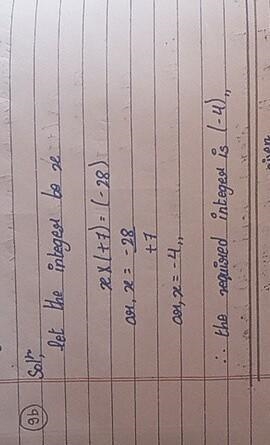 9b
Solⁿ,
let the integer be x
x × (+7) = (-28)
or, x = -28
+7
or, x = -4,,
∴ the required integer is (-4),,